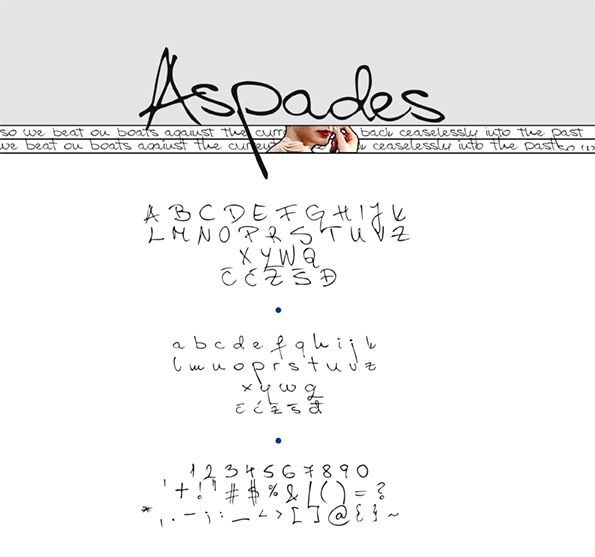 Aspades
so we beat on boats against the curr back ceaselessly into the past
we beat on boats against the current ceaselessly into the past so
A B C D E F G H I J K
L M N O P R S T U V Z
X Y W Q
C̄ Ć Z̄ S̄ Đ
a b c d e f g h i j k
l m n o p r s t u v z
x y w q
c̄ ć z̄ s̄ đ
1 2 3 4 5 6 7 8 9 0
' + ! " # $ % & / ( ) = ?
* , . - ; : _ < > [ ] @ { } ~